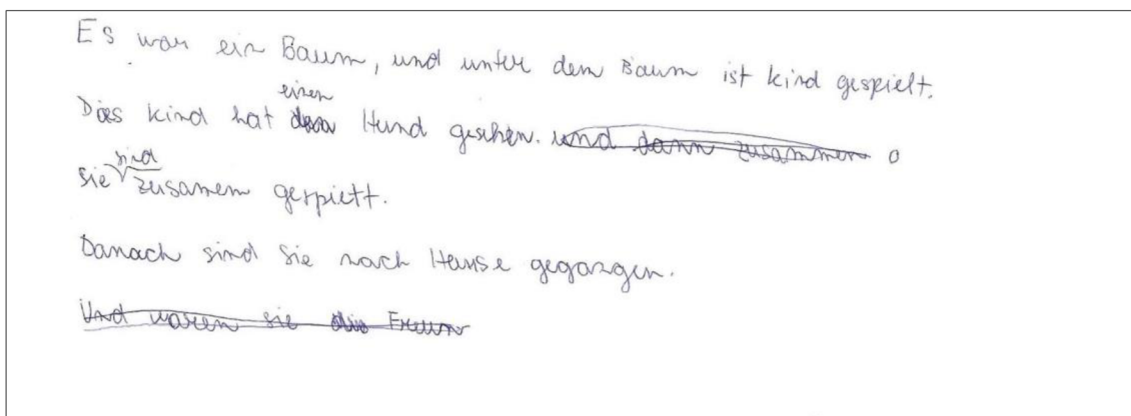 Es war ein Baum, und unter dem Baum ist kind gespielt.
Dies kind hat einen Hund gesehen. und dann zusammen
sie sind zusamem gespielt.
Danach sind sie nach Hause gegangen.
Und waren sie die Freun